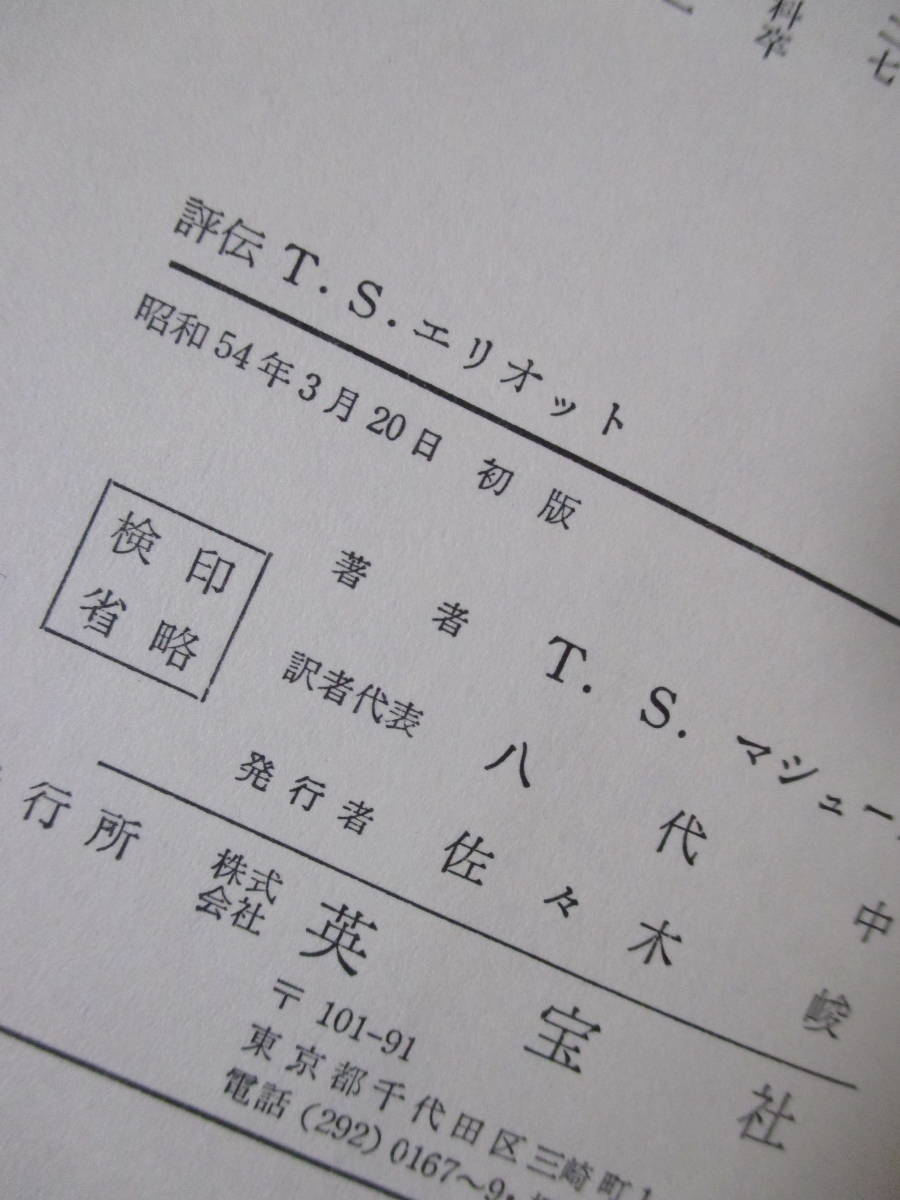 二七
科卒
一
評伝 T. S. エリオット
昭和54年3月20日 初版
検印
省略
著者 T. S. マシュー
訳者代表 八代中
発行者 佐々木峻
行所 株式会社 英宝社
〒 101-91
東京都千代田区三崎町1
電話 (292) 0167〜9・